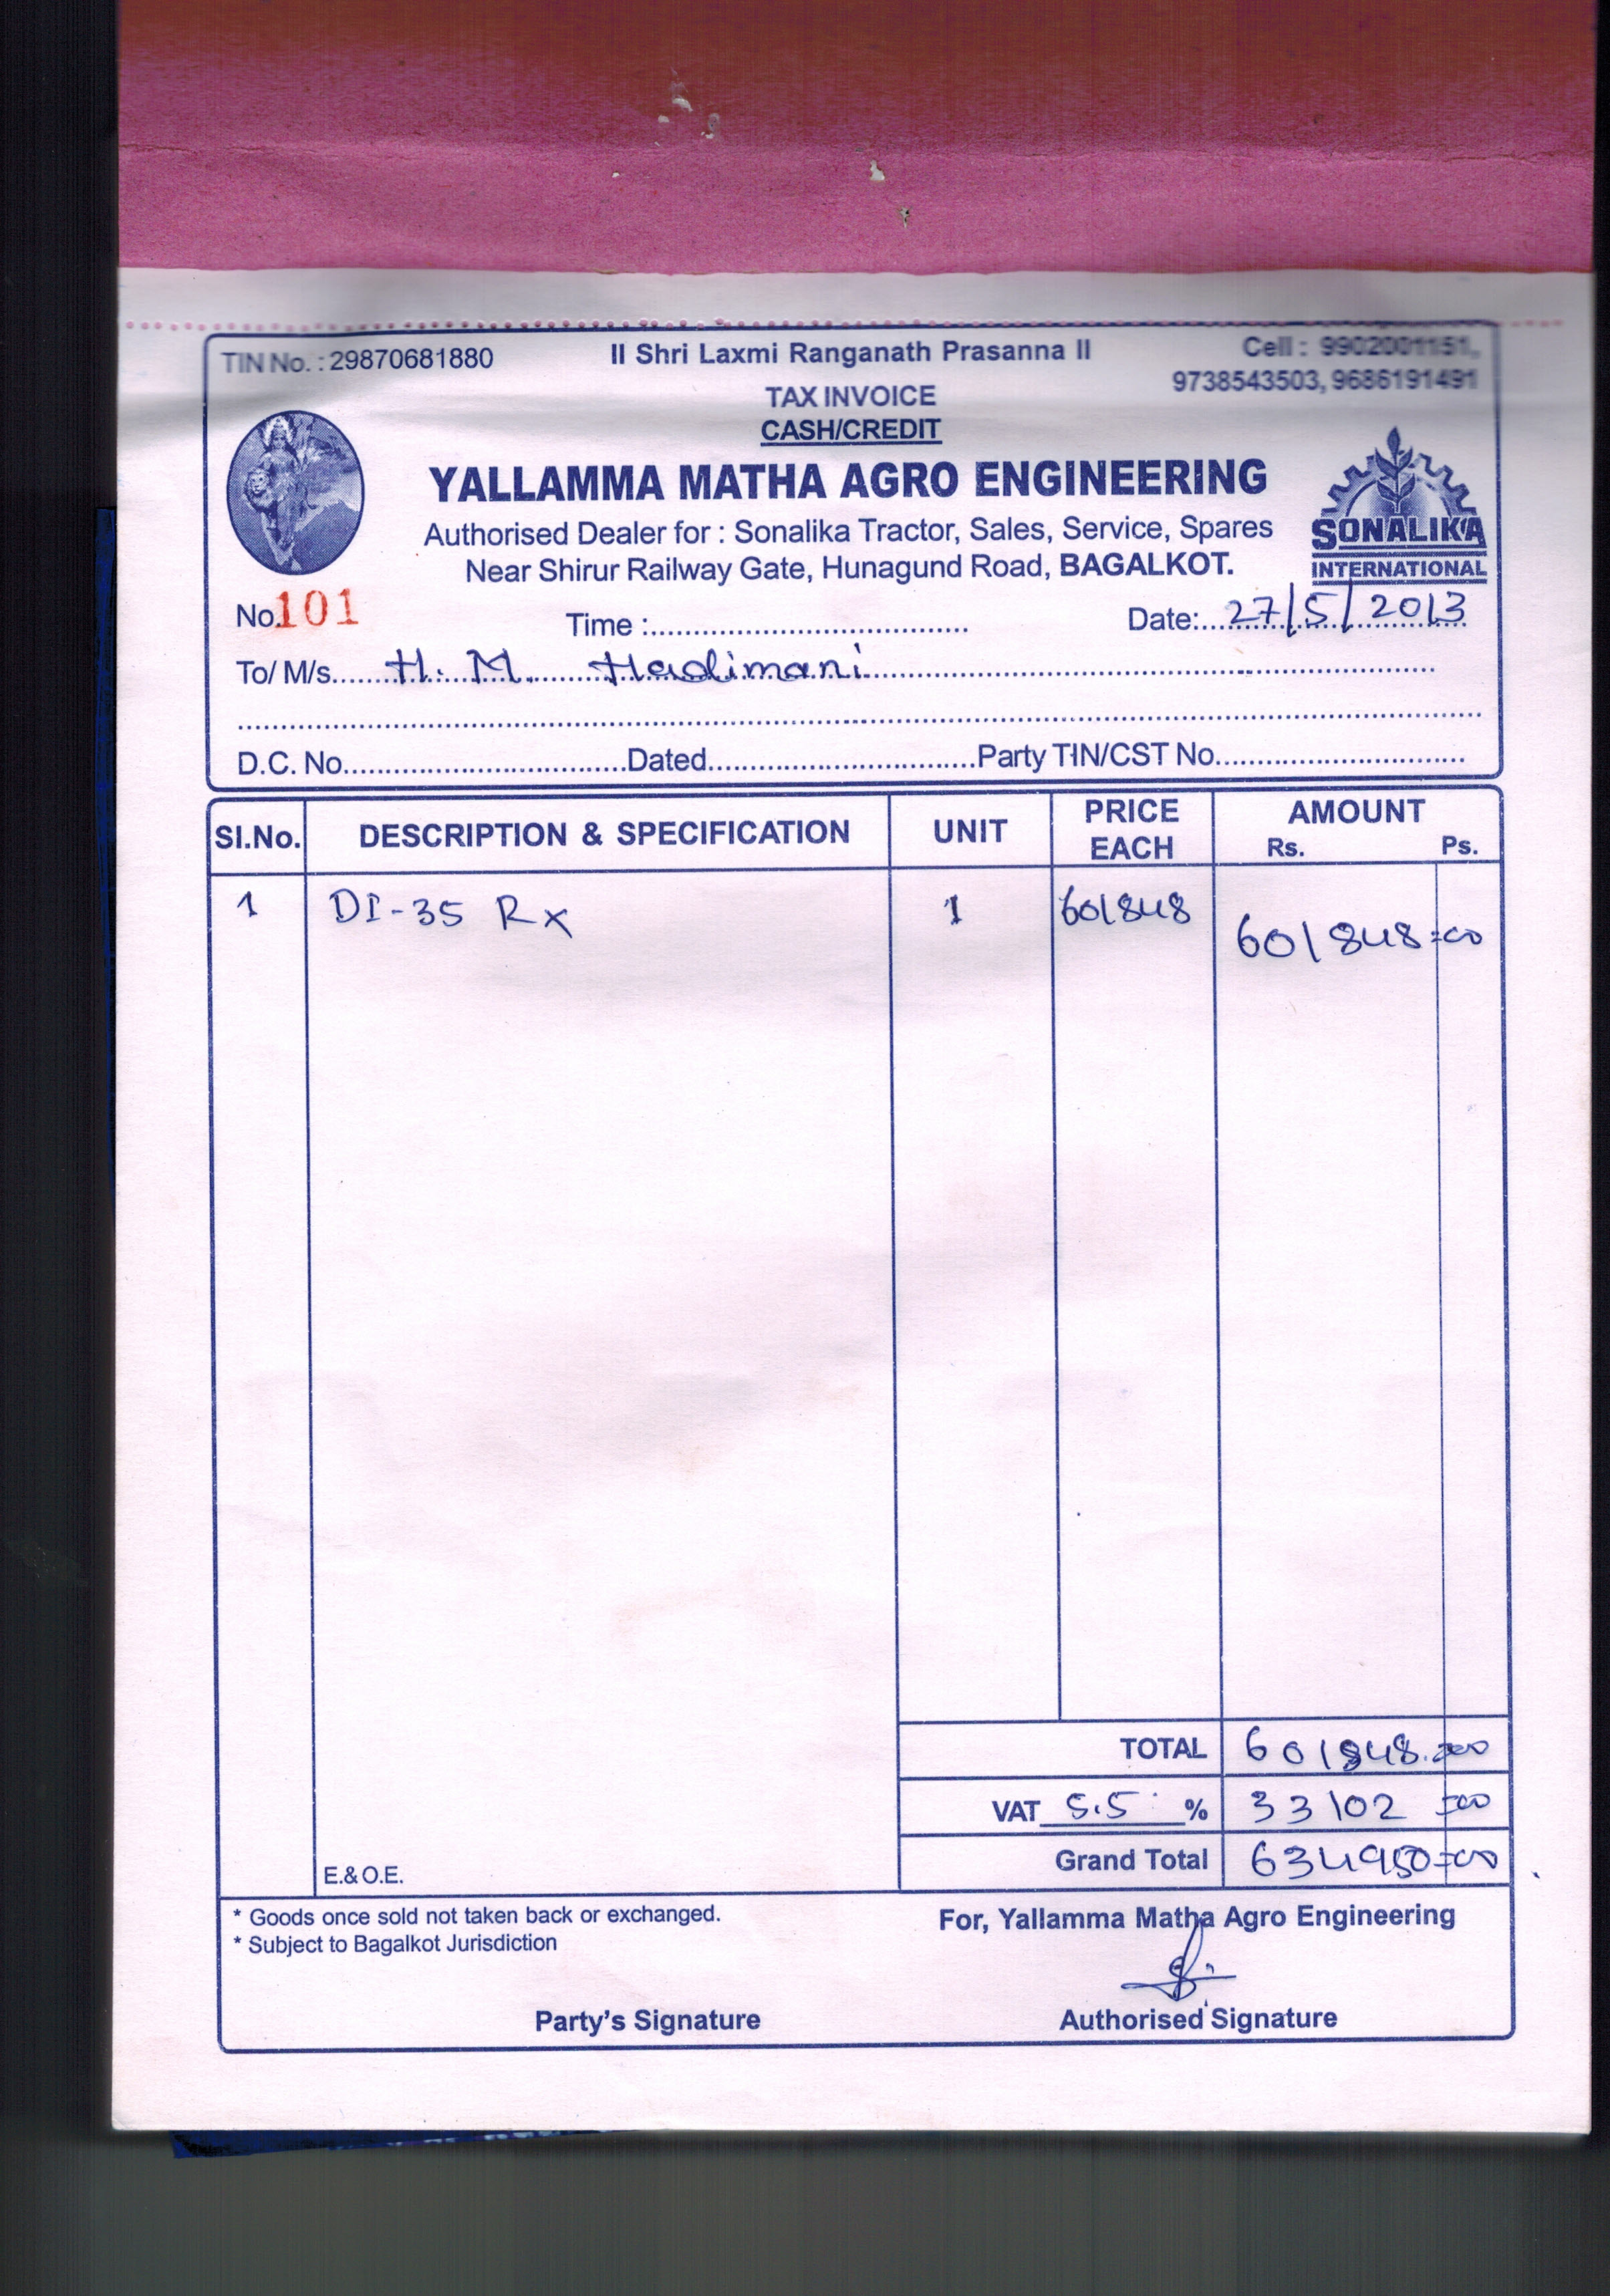 TIN No. : 29870681880
II Shri Laxmi Ranganath Prasanna II
Cell : 9902001151,
9738543503, 9686191491
TAX INVOICE
CASH/CREDIT
YALLAMMA MATHA AGRO ENGINEERING
Authorised Dealer for : Sonalika Tractor, Sales, Service, Spares
Near Shirur Railway Gate, Hunagund Road, BAGALKOT.
SONALIKA
INTERNATIONAL
No. 101 Time : Date: 27/5/2013
To/ M/s. H. M. Hadimani
D.C. No. Dated Party TIN/CST No.
Sl.No. DESCRIPTION & SPECIFICATION UNIT PRICE EACH AMOUNT Rs. Ps.
1 DI-35 Rx 1 601848 601848=00
TOTAL 601848.=00
VAT 5.5 % 33102 =00
Grand Total 634950=00
E.& O.E.
* Goods once sold not taken back or exchanged.
* Subject to Bagalkot Jurisdiction
For, Yallamma Matha Agro Engineering
Party's Signature Authorised Signature